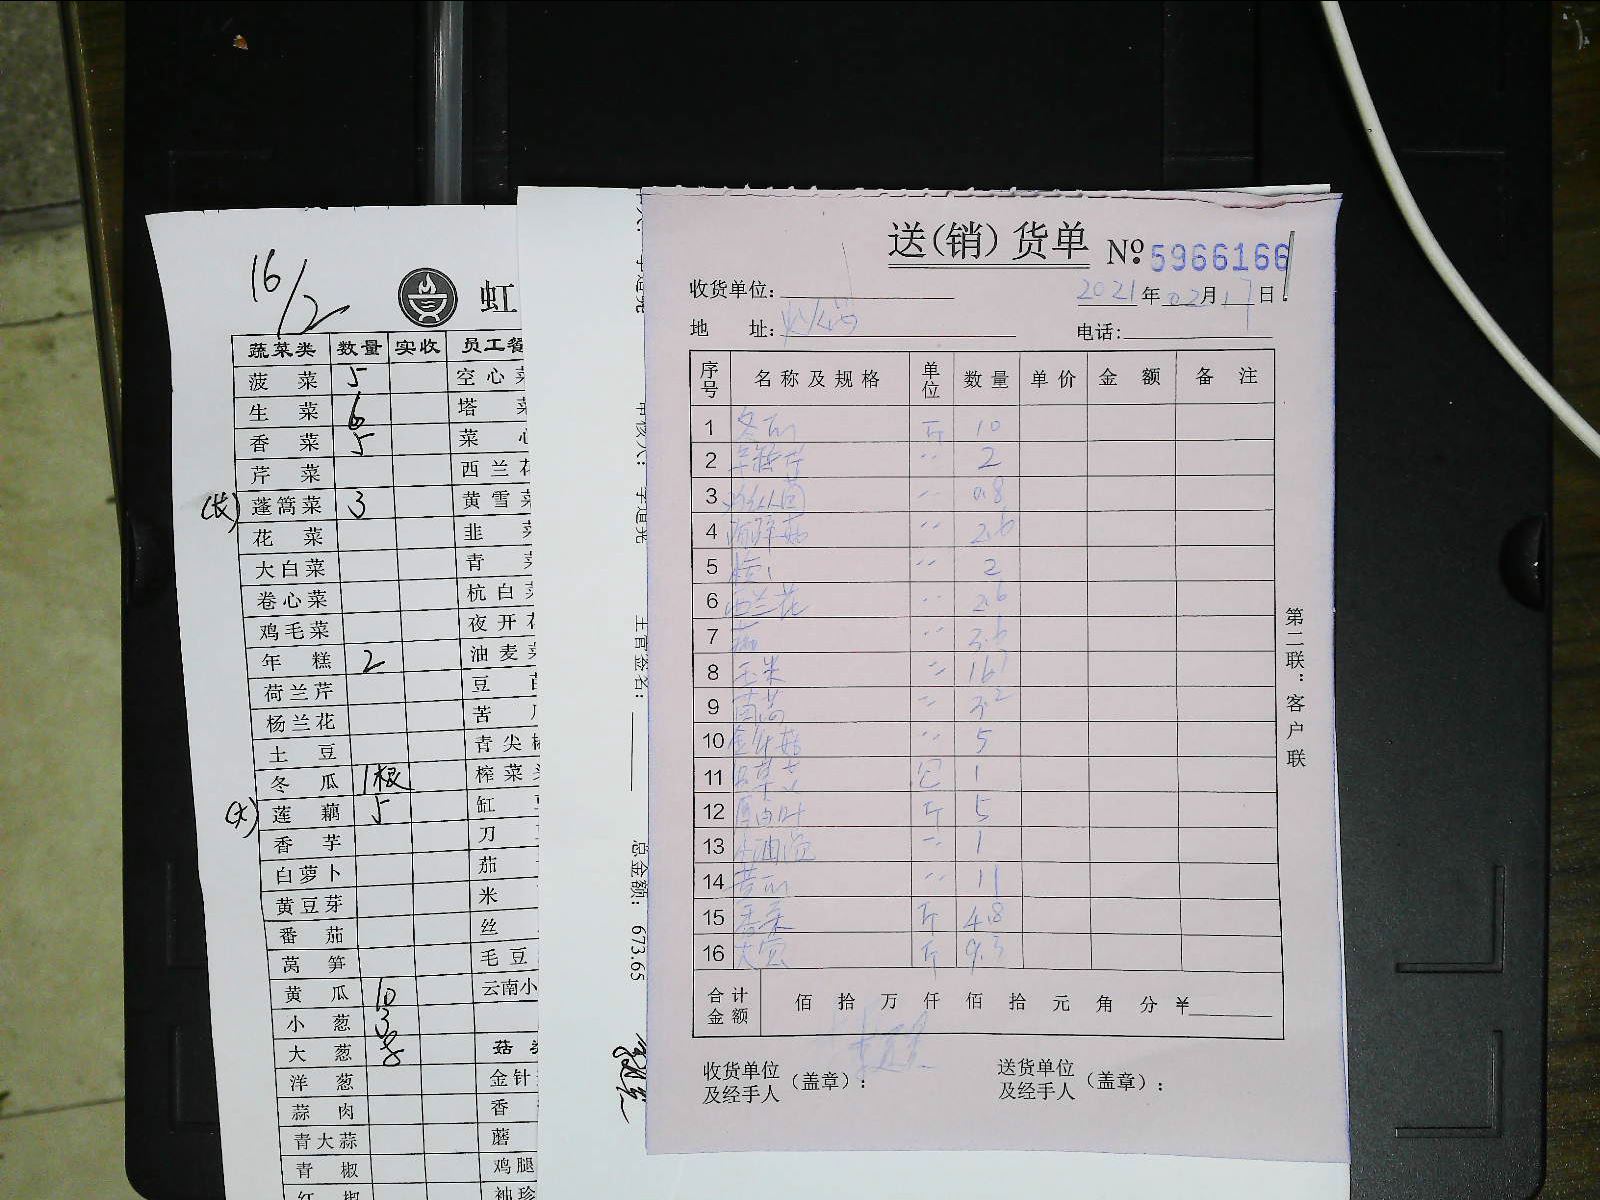 16/2
虹
蔬菜类 数量 实收 员工餐
菠菜 5 空心菜
生菜 6 塔菜
香菜 5 菜心
芹菜 西兰花
(长) 蓬蒿菜 3 黄雪菜
花菜 韭菜
大白菜 青菜
卷心菜 杭白菜
鸡毛菜 夜开花
年糕 2 油麦菜
荷兰芹 豆苗
杨兰花 苦
土豆 青尖椒
冬瓜 1根 榨菜
(大) 莲藕 5 缸豆
香芋 刀
白萝卜 茄
黄豆芽 米
番茄 丝
莴笋 毛豆
黄瓜 10 云南小
小葱 3
大葱 8 菇类
洋葱 金针
蒜肉 香
青大蒜 蘑
青椒 鸡腿
红椒 袖珍
主管签名:
总金额: 673.65
送(销)货单 No. 5966166
收货单位: 2021年02月17日
地址: 电话:
序号 名称及规格 单位 数量 单价 金额 备注
1 冬瓜 斤 10
2 2
3 0.8
4 2.6
5 2
6 西兰花 2.6
7 3.6
8 玉米 16
9 茼蒿 3.2
10 金针菇 5
11 包 1
12 厚百叶 斤 5
13 小油豆 1
14 苦瓜 11
15 香菜 斤 4.8
16 斤 9.3
合计金额 佰拾万仟佰拾元角分 ¥
收货单位及经手人(盖章): 送货单位及经手人(盖章):
第二联:客户联